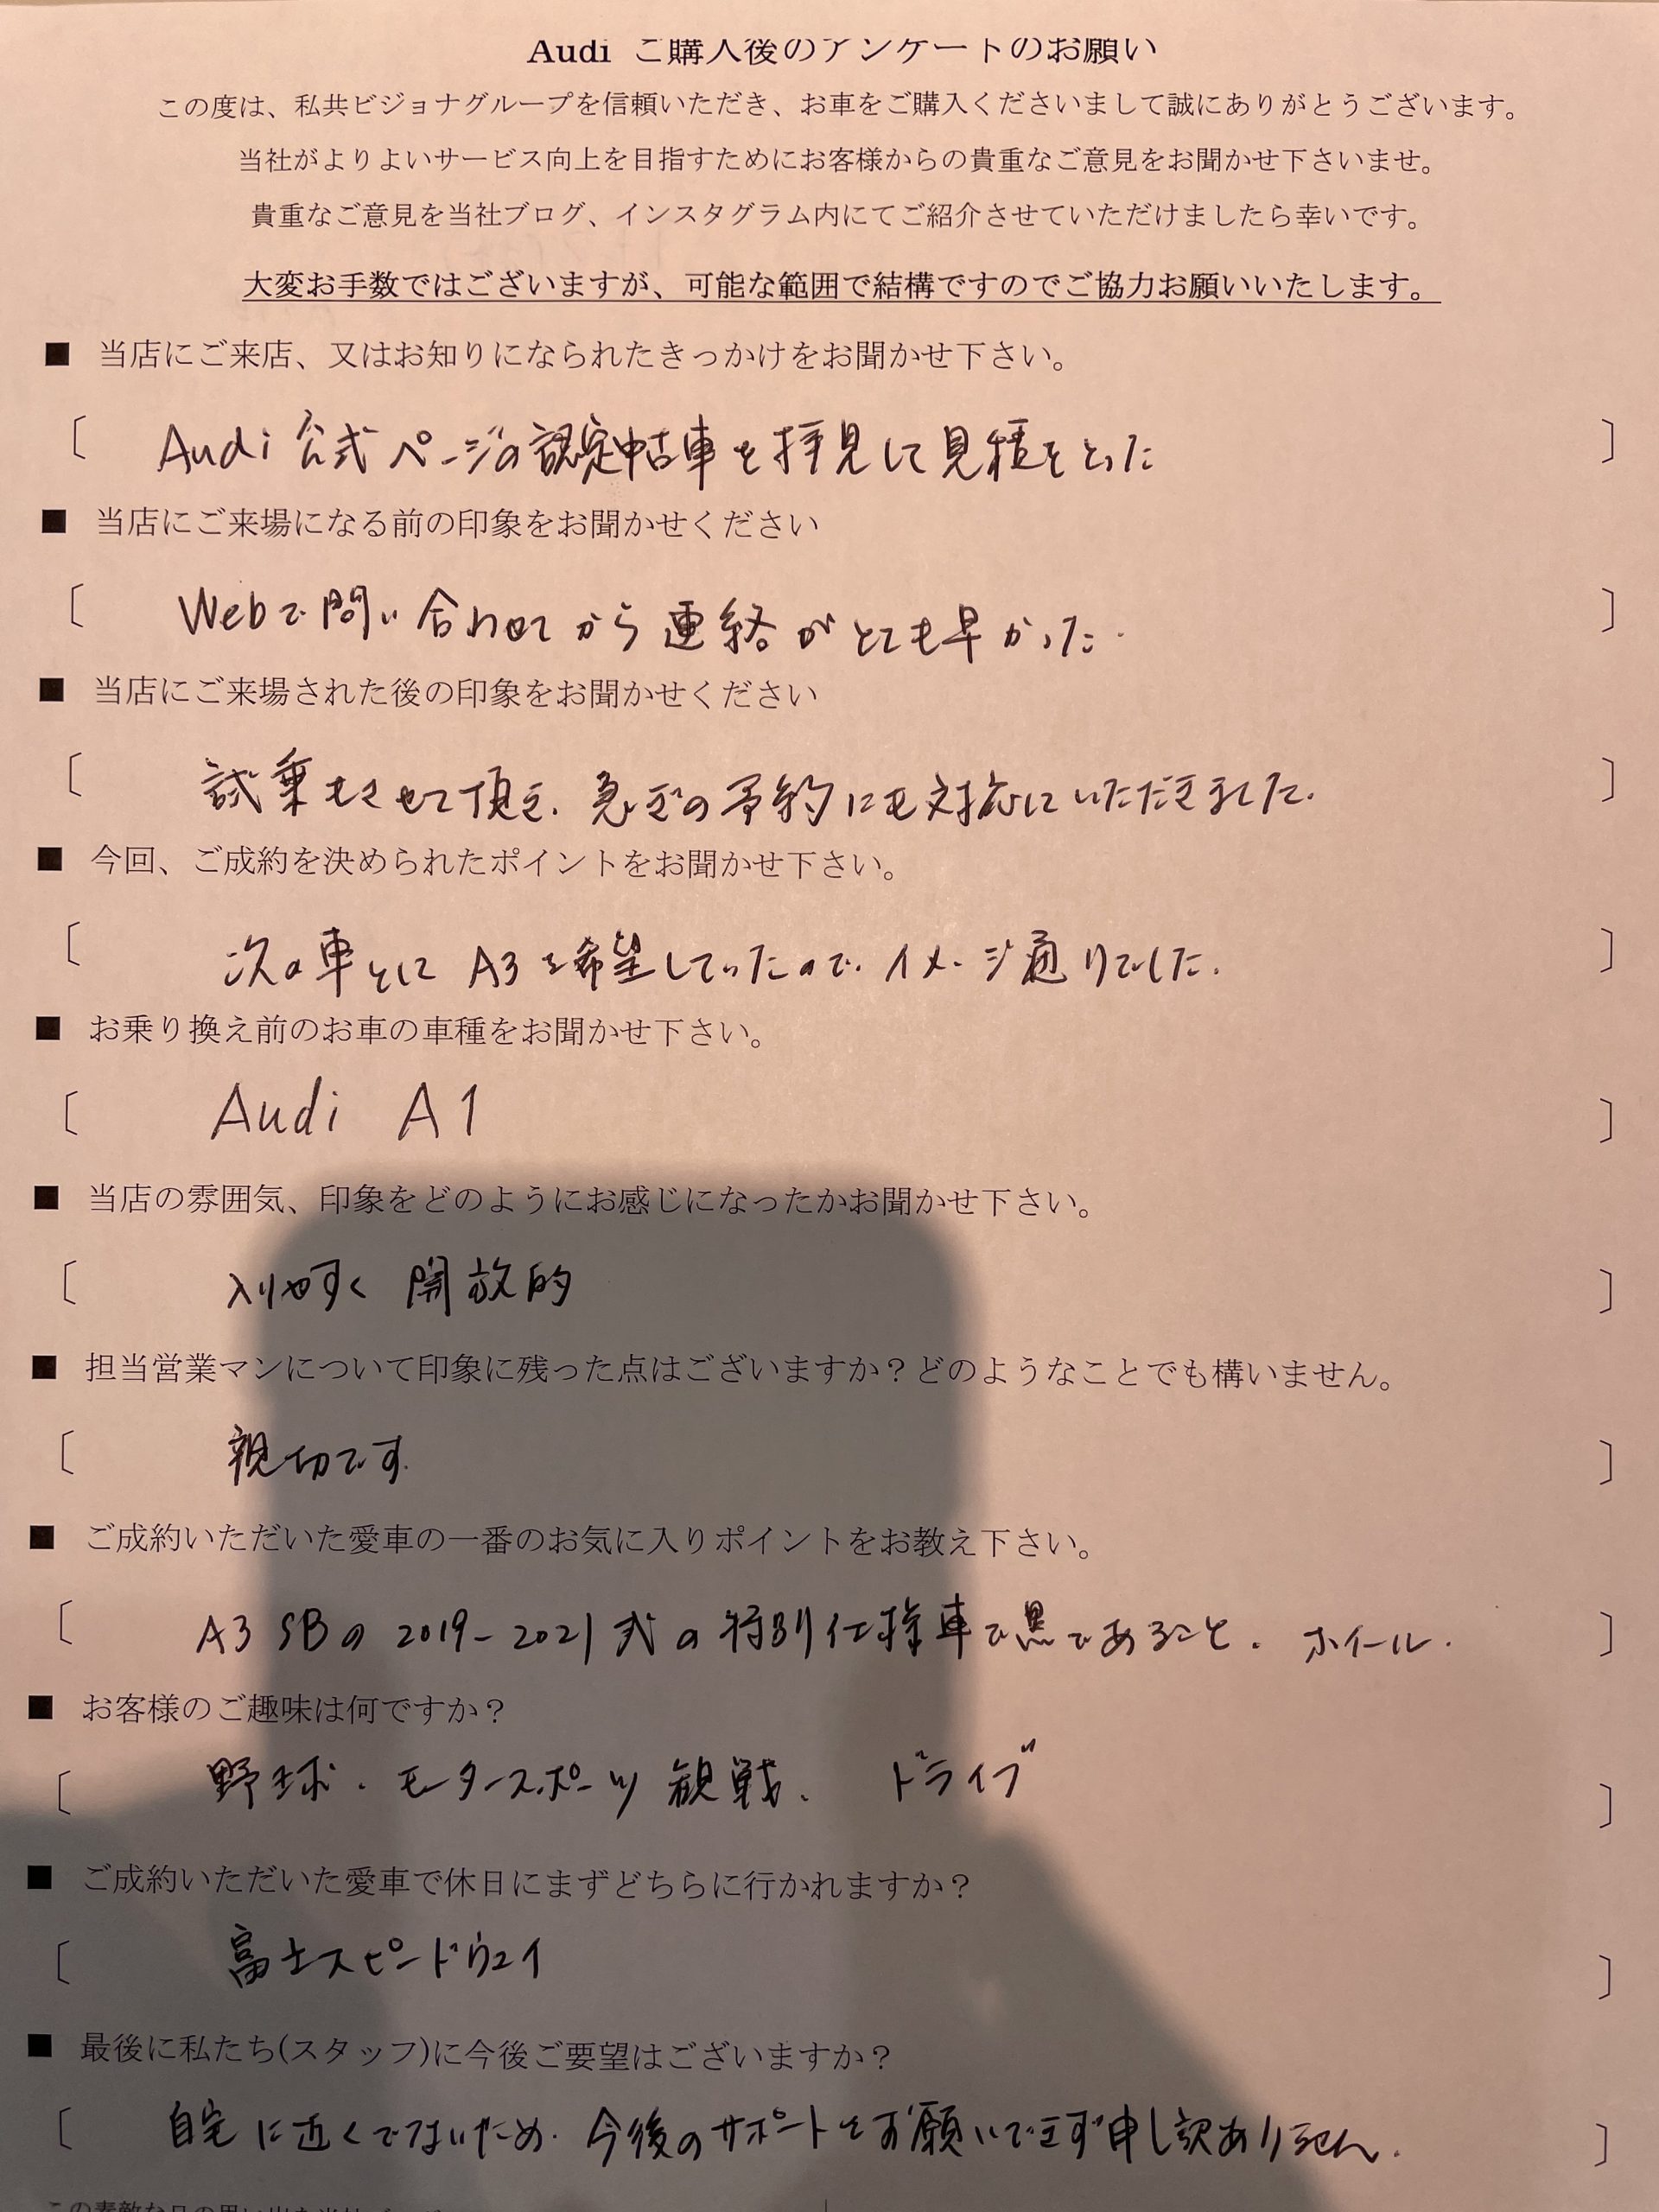 Audi ご購入後のアンケートのお願い
この度は、私共ビジョナグループを信頼いただき、お車をご購入くださいまして誠にありがとうございます。
当社がよりよいサービス向上を目指すためにお客様からの貴重なご意見をお聞かせ下さいませ。
貴重なご意見を当社ブログ、インスタグラム内にてご紹介させていただけましたら幸いです。
大変お手数ではございますが、可能な範囲で結構ですのでご協力お願いいたします。
■ 当店にご来店、又はお知りになられたきっかけをお聞かせ下さい。
〔 Audi 公式ページの認定中古車を拝見して見積をとった 〕
■ 当店にご来場になる前の印象をお聞かせください
〔 Webで問い合わせてから連絡がとても早かった 〕
■ 当店にご来場された後の印象をお聞かせください
〔 試乗もさせて頂き、急ぎの予約にも対応にいただきました。 〕
■ 今回、ご成約を決められたポイントをお聞かせ下さい。
〔 次の車とに A3を希望していたので、イメージ通りでした。 〕
■ お乗り換え前のお車の車種をお聞かせ下さい。
〔 Audi A1 〕
■ 当店の雰囲気、印象をどのようにお感じになったかお聞かせ下さい。
〔 入りやすく 開放的 〕
■ 担当営業マンについて印象に残った点はございますか？どのようなことでも構いません。
〔 親切です 〕
■ ご成約いただいた愛車の一番のお気に入りポイントをお教え下さい。
〔 A3 SBの 2019-2021式の特別仕様車で黒であること。ホイール。 〕
■ お客様のご趣味は何ですか？
〔 野球・モータースポーツ観戦、ドライブ 〕
■ ご成約いただいた愛車で休日にまずどちらに行かれますか？
〔 富士スピードウェイ 〕
■ 最後に私たち(スタッフ)に今後ご要望はございますか？
〔 自宅に近くでないため、今後のサポートをお願いできず申し訳ありません。 〕